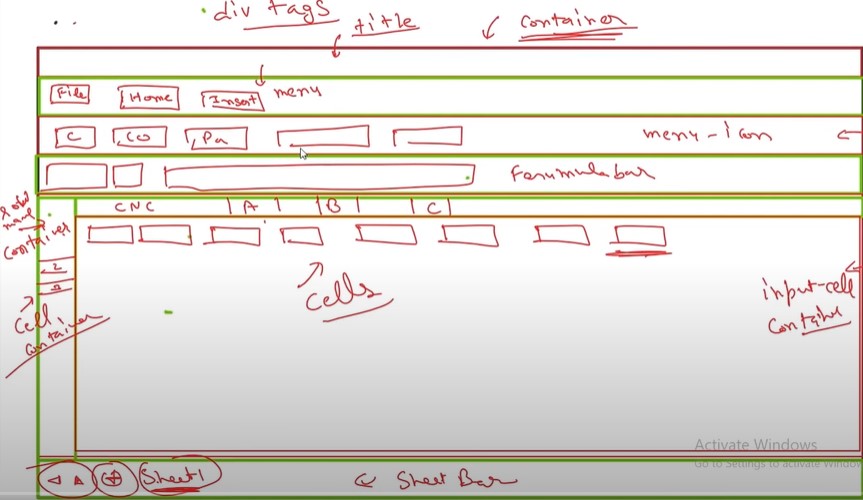 div tags
title
container
File Home Insert menu
C CO Pa menu-icon
Forumula bar
CNC A B C
name
container
2
3
cells
cell
container
input-cell
container
Activate Windows
Go to Settings to activate Windows
Sheet1
Sheet Bar